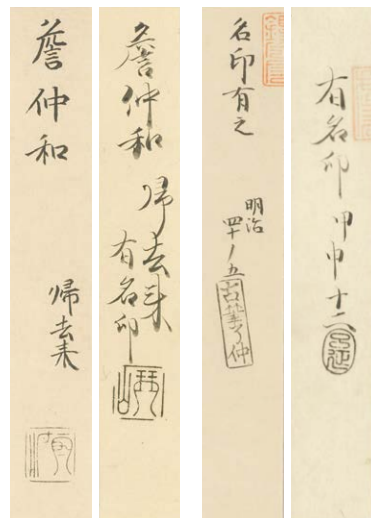 詹仲和
帰去来
詹仲和
帰去来
有名印
琴山
名印有之
明治
四十ノ五
古筆了仲
有名印 甲申十二